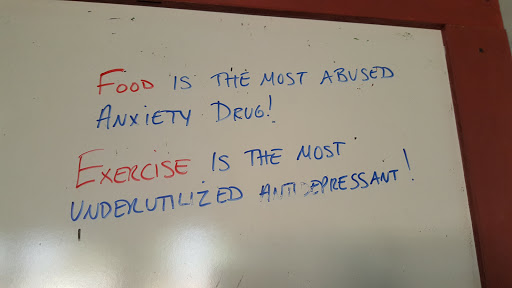 FOOD IS THE MOST ABUSED
ANXIETY DRUG!
EXERCISE IS THE MOST
UNDERUTILIZED ANTIDEPRESSANT!